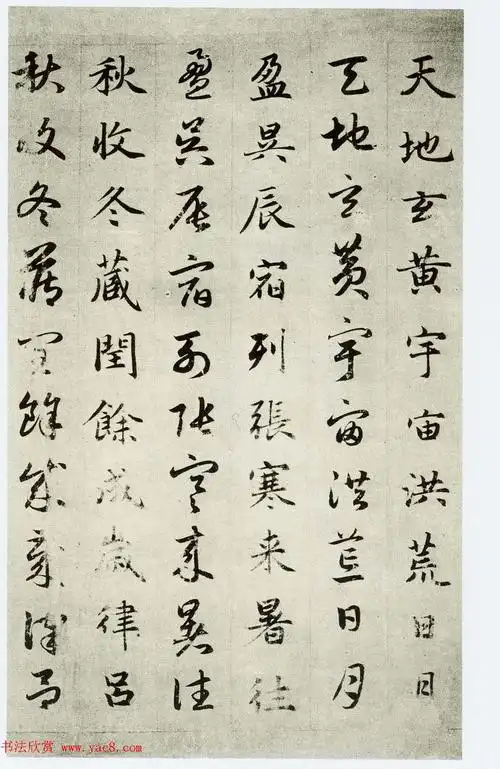 天地玄黄宇宙洪荒日月
天地玄黄宇宙洪荒日月
盈昃辰宿列張寒来暑往
盈昃辰宿列張寒来暑往
秋收冬藏閏餘成歲律呂
秋收冬藏閏餘成歲律呂
书法欣赏 www.yac8.com